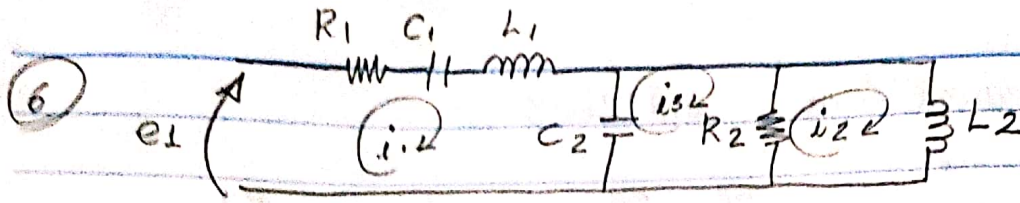 R1 C1 L1
6
e1 i1 C2 i3 R2 i2 L2